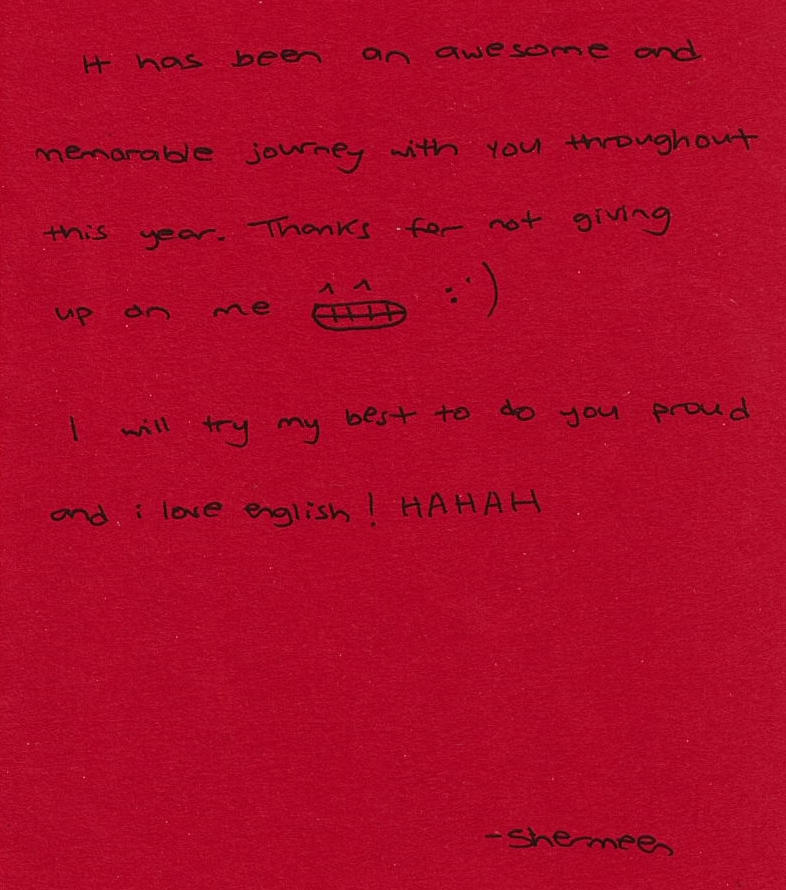 It has been an awesome and
memorable journey with you throughout
this year. Thanks for not giving
up on me :')
I will try my best to do you proud
and i love english! HAHAH
-Shermeen